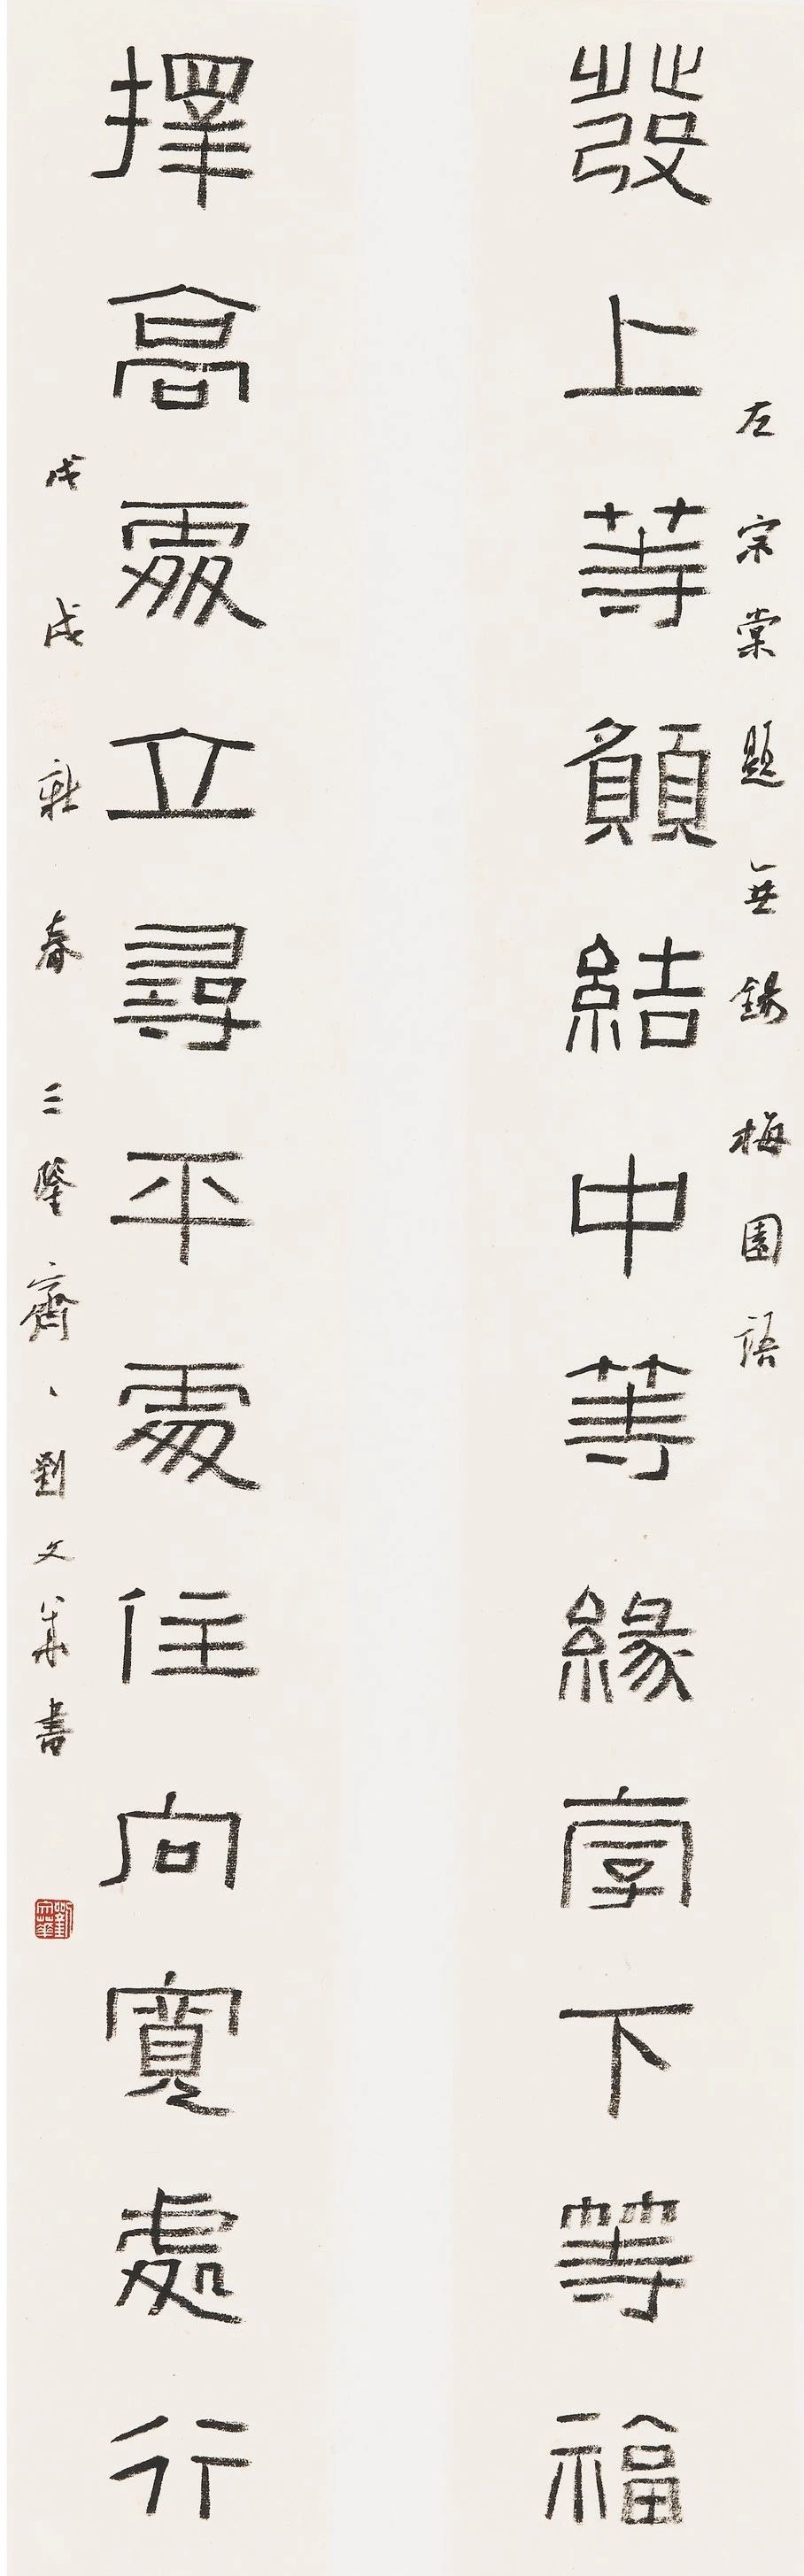 左宗棠題無錫梅園語
發上等願結中等緣享下等福
擇高處立尋平處住向寬處行
戊戌新春三齋劉文華書
劉文華